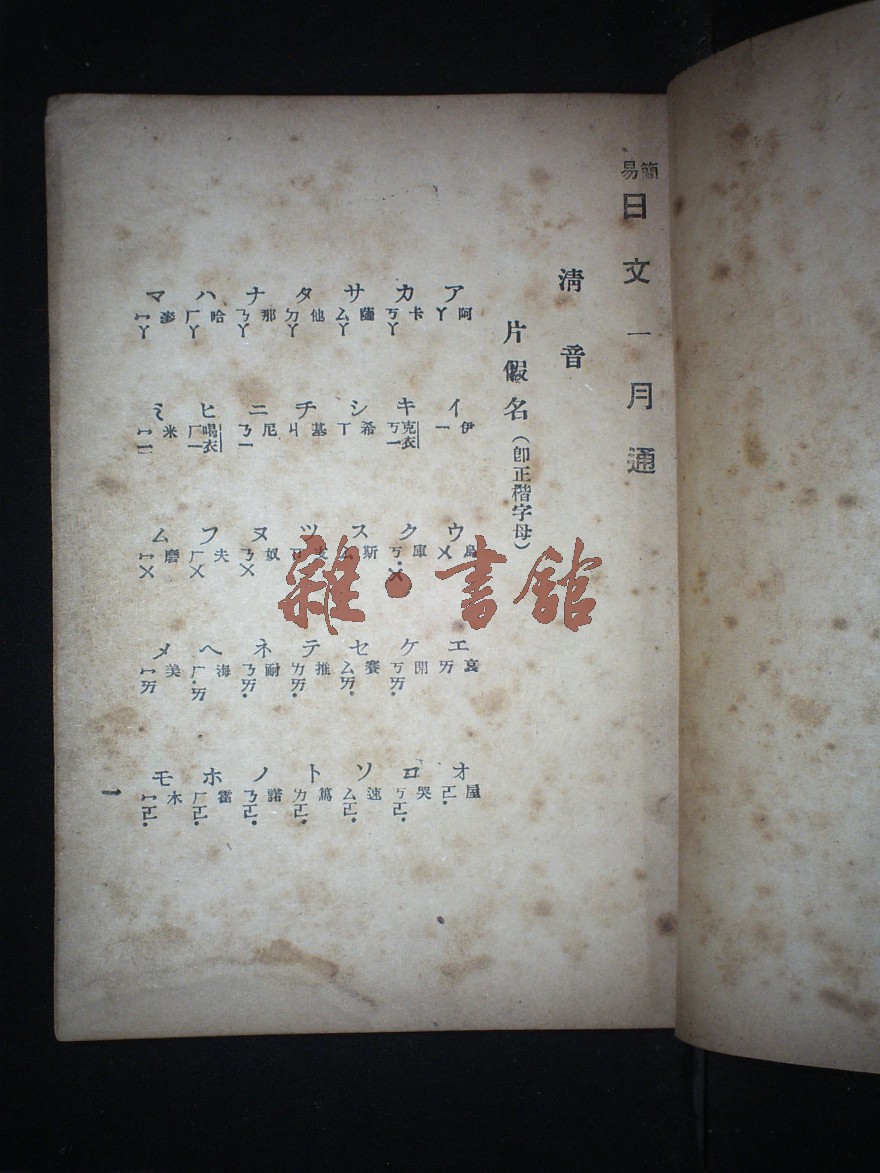 簡易日文一月通
清音
片假名（卽正楷字母）
ア イ ウ エ オ
阿 伊 烏 哀 屋
ㄚ ㄧ ㄨ ㄞ ㄛ·
カ キ ク ケ コ
卡 克衣 庫 開 哭
ㄎㄚ ㄎㄧ ㄎ·ㄨ ㄎㄞ· ㄎㄛ·
サ シ ス セ ソ
薩 希 斯 速
ㄙㄚ ㄒ ㄙ ㄙㄞ· ㄙㄛ·
タ チ ツ テ ト
他 基 推 篤
ㄉㄚ ㄐ ㄗ ㄉㄞ· ㄉㄛ·
ナ ニ ヌ ネ ノ
那 尼 奴 耐 諾
ㄋㄚ ㄋㄧ ㄋㄨ ㄋㄞ· ㄋㄛ·
ハ ヒ フ ヘ ホ
哈 喝衣 夫 海 霍
ㄏㄚ ㄏㄧ ㄏㄨ ㄏ·ㄞ ㄏㄛ·
マ ミ ム メ モ
米 磨 美 木
ㄇㄚ ㄇㄧ ㄇㄨ ㄇㄞ ㄇㄛ·
一
雜·書館